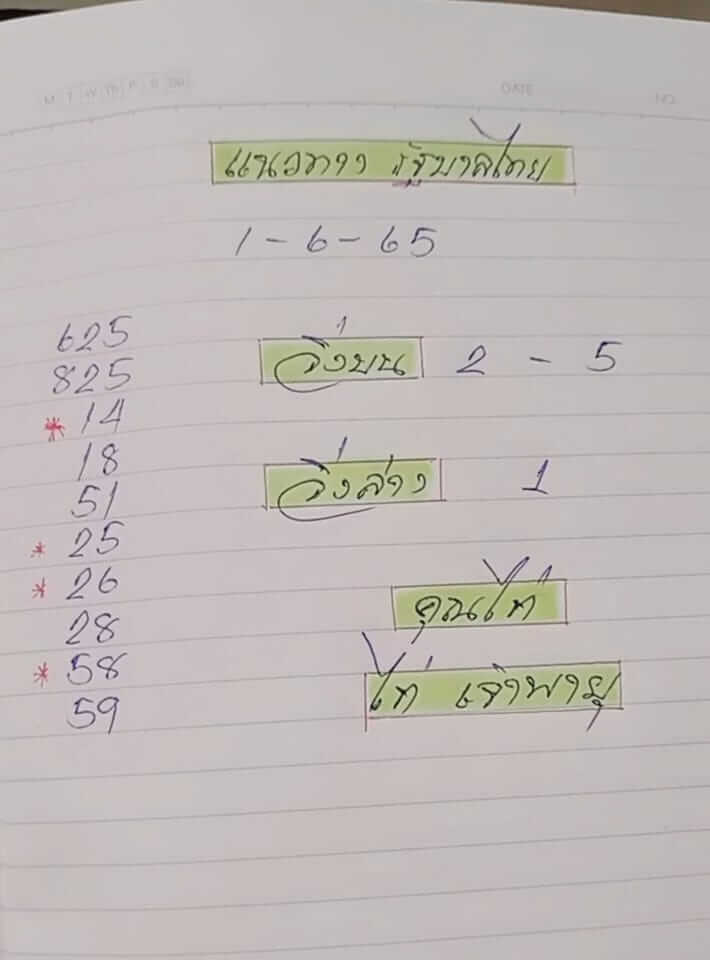 M T W Th F S Su DATE NO.
แนวทาง รัฐบาลไทย
1 - 6 - 65
625
825
* 14
18
51
* 25
* 26
28
* 58
59
วิ่งบน 2 - 5
วิ่งล่าง 1
คุณไก่
ไก่ เจ้าพายุ